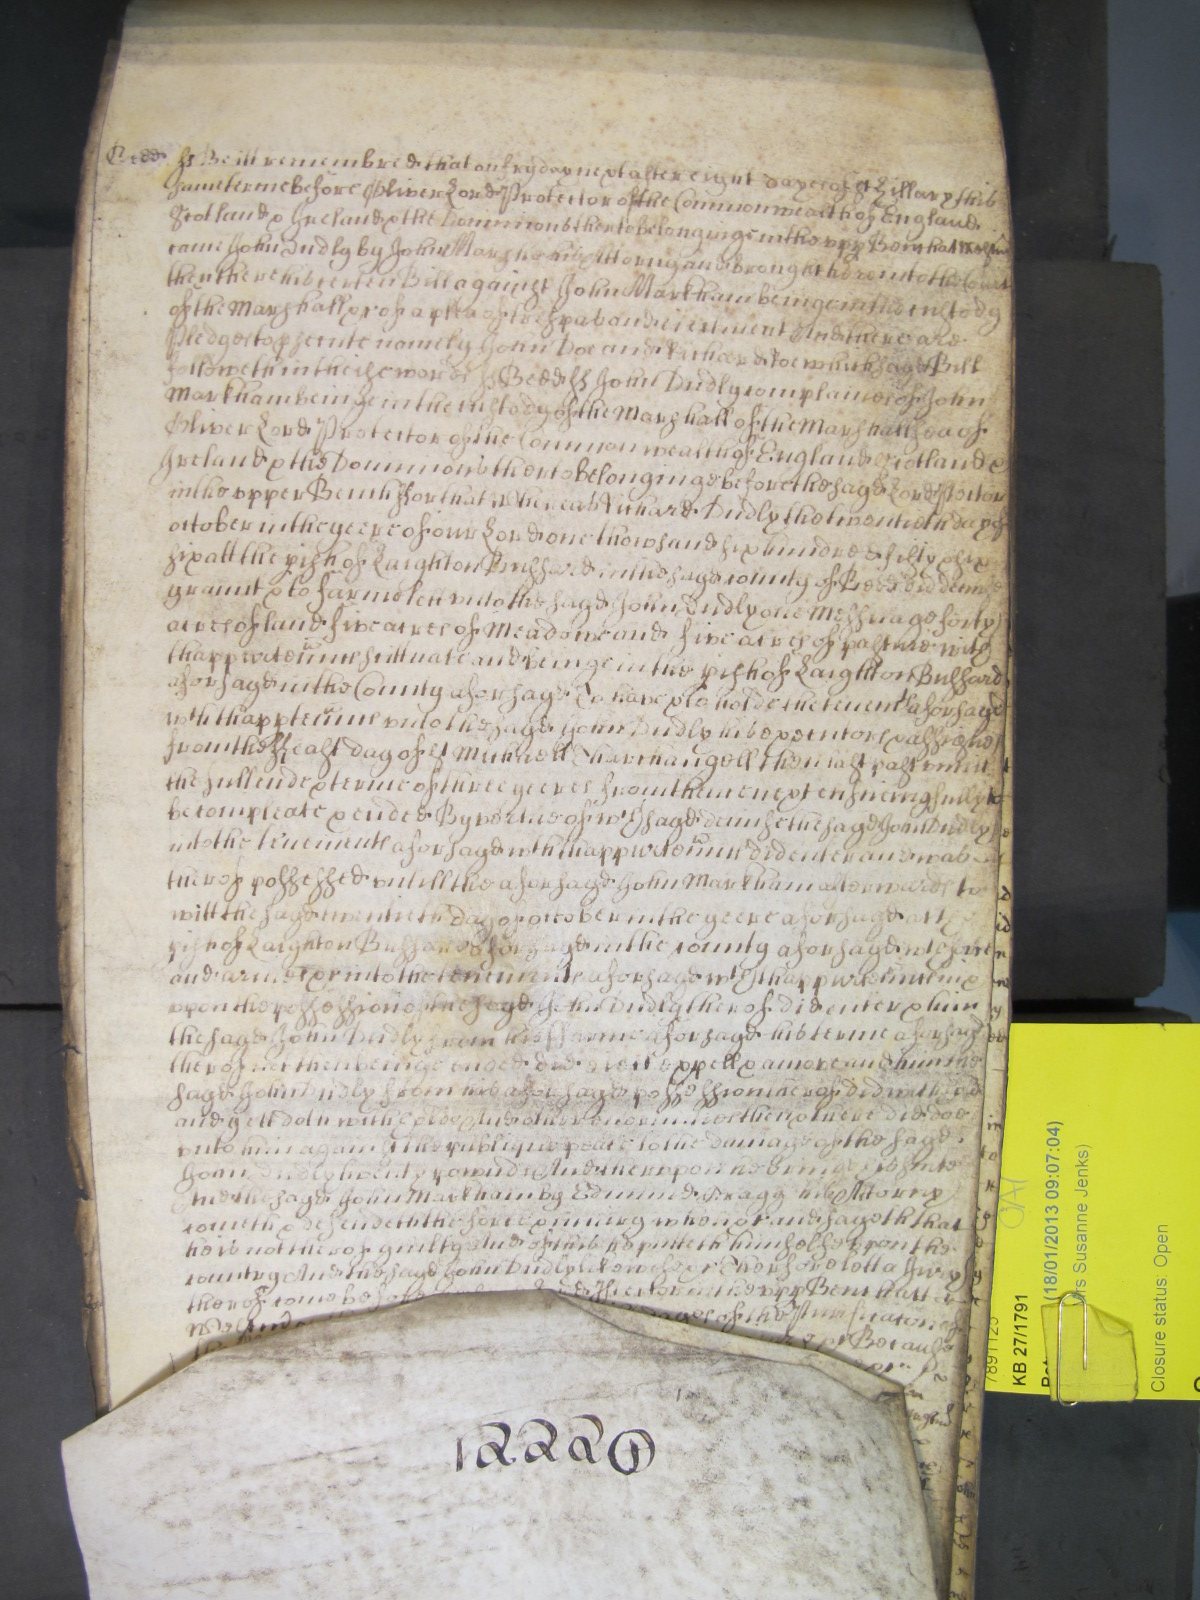 Bedd ss Be itt remembred that on fryday next after eight dayes of St Hillary this
same terme before Oliver Lord Protector of the Commonwealth of England
Scotland & Ireland & the Dominions therto belonginge in the upp Bench att
came John Dudly by John Marshe his Attorny and brought here into the Court
then there his certen Bill against John Markham beinge in the custody
of the Marshall &c of a plea of trespas and eiectment And there are
pledges to psecute namely John Doe and Richard Roe which sayd Bill
followeth in theise words ss Bedd ss John Dudly complaines of John
Markham beinge in the custody of the Marshall of the Marshallsea of
Oliver Lord Protector of the Common wealth of England Scotland &
Ireland & the Dominions therto belonginge before the sayd Lord Ptector
in the upper Bench For that whereas Richard Dudly the twentieth day of
october in the yeere of our Lord one thowsand six hundred fifty &
six att the pish of Laighton Bussard in the sayd county of Bedd did demise
graunt & to farme lett unto the sayd John Dudly one Messuage forty
acres of land five acres of Meadowe and five acres of pasture with
thappurtennces scittuate and beinge in the pish of Laighton Bussard
aforsayd in the County aforsayd To have & to hold the tenemts aforsayd
wth thappurtennces unto the sayd John Dudly his executors & assignes
from the Feast day of St Michaell Tharchangell then last past untill
the full end & terme of three yeeres from thence next ensueing fully to
be compleate & ended By vertue of wch sayd demise the sayd John Dudly
into the tenements aforsayd wth thappurtennces did enter and was
therof possessed untill the aforsayd John Markham afterwards to
witt the sayd twentieth day of october in the yeere aforsayd att
pish of Laighton Bussard aforsayd in the county aforsayd with force
and armes &c into the tenements aforsayd wth thappurtennces in &
uppon the possession of the sayd John Dudly therof did enter & him
the sayd John Dudly from his farme aforsayd his terme aforsayd
therof not then beinge ended did eiect expell & amove and him the
sayd John Dudly from his aforsayd possession therof did withhold
and yett doth withhold And other enormities then & there did doe
unto him against the publique peace to the damage of the sayd
John Dudly twenty pounds And theruppon he brings his suite
And the sayd John Markham by Edmund Bragg his Attorny
cometh & defendeth the force & iniury when &c and sayeth that
he is not therof guilty And of this he putteth himselfe uppon the
country And the sayd John Dudly likewise &c Therfore lett a Jury
therof come before the Lord Ptector in the upp Bench att
of the Purification of
Because
12220
KB 27/1791
(18/01/2013 09:07:04)
Susanne Jenks)
Closure status: Open